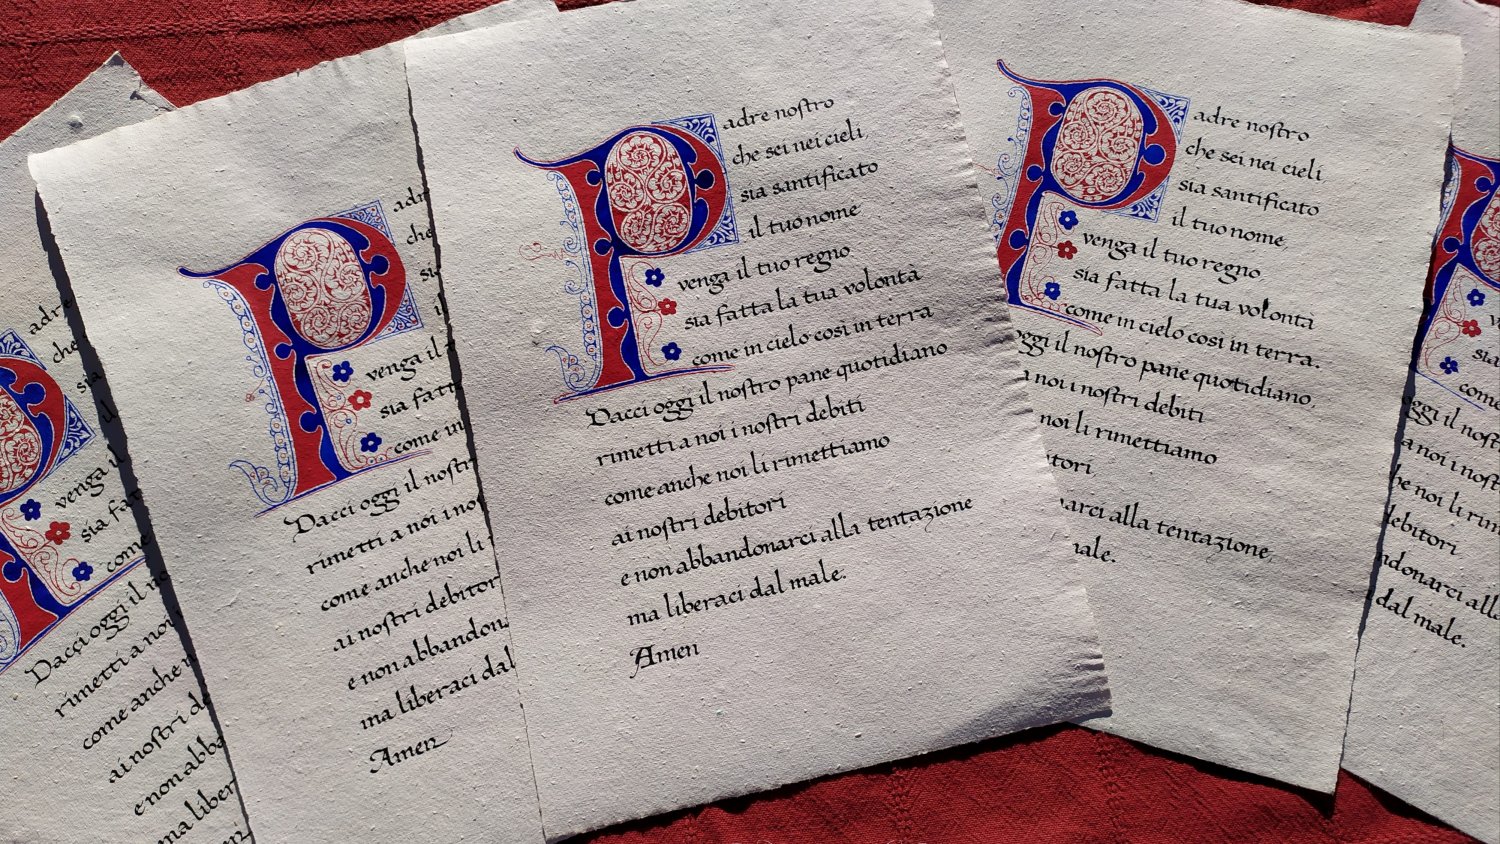 Padre
che
sia
il
venga il
sia fat
come
Dacci oggi il no
rimetti a noi
come anche n
ai nostri de
e non abba
ma liber
Padr
che
si
venga il
sia fatt
come in
Dacci oggi il nostr
rimetti a noi i nos
come anche noi li
ai nostri debitor
e non abbandon
ma liberaci dal
Amen
Padre nostro
che sei nei cieli
sia santificato
il tuo nome
venga il tuo regno
sia fatta la tua volontà
come in cielo cosi in terra
Dacci oggi il nostro pane quotidiano
rimetti a noi i nostri debiti
come anche noi li rimettiamo
ai nostri debitori
e non abbandonarci alla tentazione
ma liberaci dal male.
Amen
Padre nostro
che sei nei cieli
sia santificato
il tuo nome
venga il tuo regno
sia fatta la tua volontà
come in cielo cosi in terra.
oggi il nostro pane quotidiano,
a noi i nostri debiti
noi li rimettiamo
itori
narci alla tentazione,
male.
P
v
sia
come
oggi il nost
a noi i nost
he noi li rim
debitori
ndonarci alla
dal male.